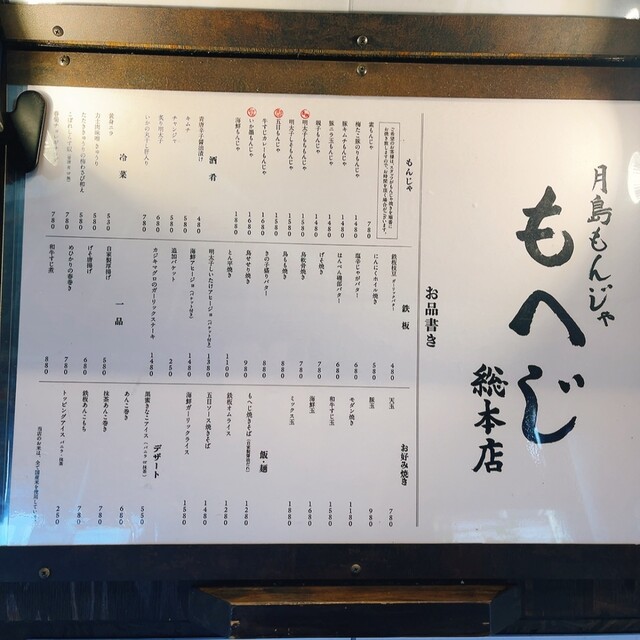 月島もんじゃ
もへじ
総本店
お品書き
もんじゃ
素もんじゃ 780
梅たこ豚のりもんじゃ 1480
豚キムチもんじゃ 1480
豚ニラ玉もんじゃ 1480
親子もんじゃ 1480
明太子もちもんじゃ 1580
明太子しそもんじゃ 1580
五目もんじゃ 1580
牛すじカレーもんじゃ 1680
いか墨もんじゃ 1680
海鮮もんじゃ 1880
酒肴
青唐辛子醤油漬け 480
キムチ 580
チャンジャ 580
炙り明太子 680
いかの丸干し 肝入り 780
冷菜
530
580
580
780
780
鉄板
鉄板枝豆 480
にんにくホイル焼き
塩辛じゃがバター 680
はんぺん磯部バター 680
げそ焼き 780
鳥軟骨焼き 780
鳥もも焼き 780
きの子盛りバター 880
鳥せせり焼き 980
とん平焼き 1100
明太子しいたけアヒージョ 1380
海鮮アヒージョ 1480
追加バケット 250
カジキマグロのガーリックステーキ 1480
一品
自家製厚揚げ 580
げそ唐揚げ 680
めひかりの唐巻き 780
和牛すじ煮 880
お好み焼き
天玉 780
豚玉 980
モダン焼き 1180
和牛すじ玉 1580
海鮮玉 1680
ミックス玉 1880
飯・麺
もへじ焼きそば 1280
鉄板オムライス 1280
五目ソース焼きそば 1480
海鮮ガーリックライス 1580
デザート
黒蜜きなこアイス 550
あんこ巻き 680
抹茶あんこ巻き 780
鉄板あんこもち 780
トッピングアイス 250
当店のお米は、全て国産米を使用しています。